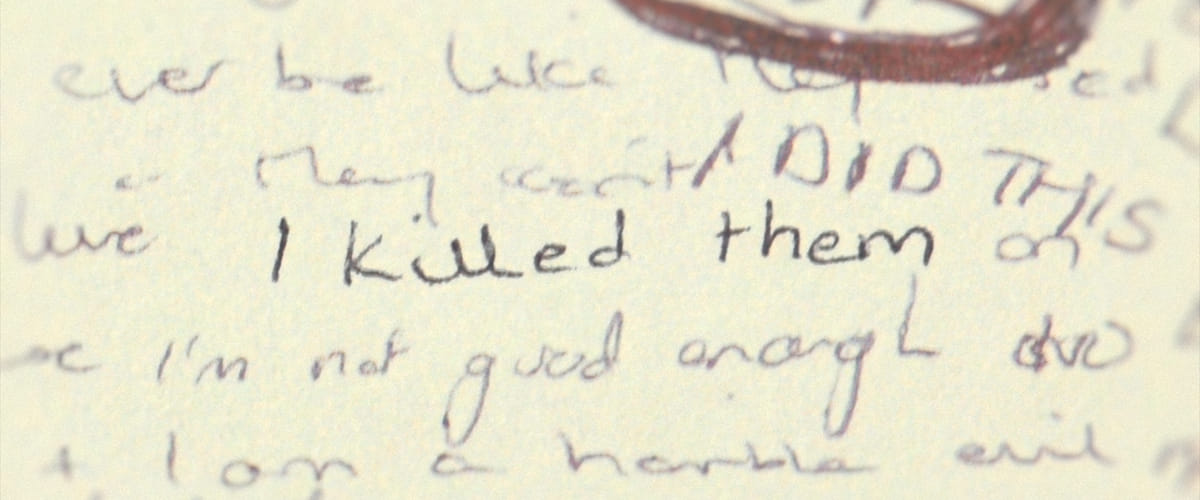 ever be like They
They can't I DID THIS
live I killed them on
I'm not good enough
I am a horrible evil